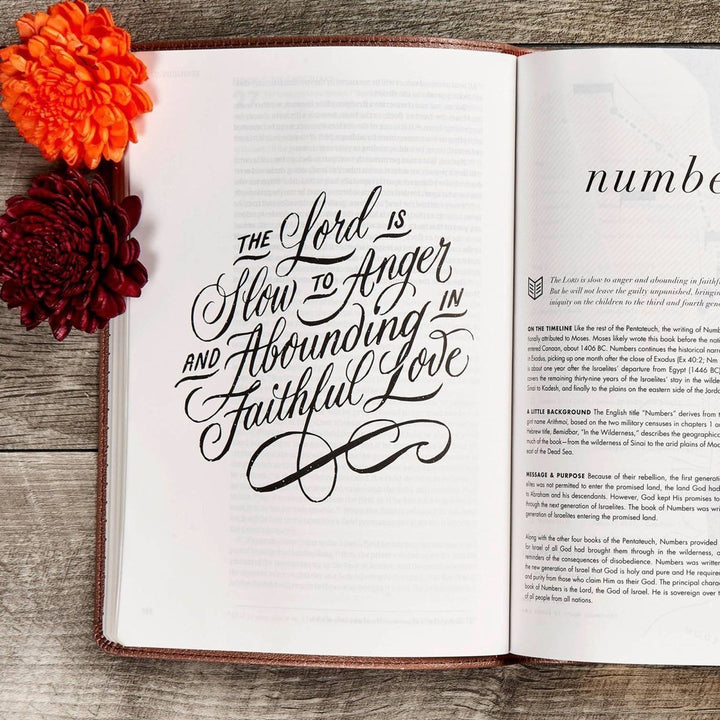 THE Lord IS
Slow TO Anger
AND Abounding IN
Faithful Love
numbe
The LORD is slow to anger and abounding in faithf
But he will not leave the guilty unpunished, bringin
iniquity on the children to the third and fourth gene
ON THE TIMELINE Like the rest of the Pentateuch, the writing of Numb
tionally attributed to Moses. Moses likely wrote this book before the nati
entered Canaan, about 1406 BC. Numbers continues the historical narra
in Exodus, picking up one month after the close of Exodus (Ex 40:2; Nm
is about one year after the Israelites' departure from Egypt (1446 BC)
covers the remaining thirty-nine years of the Israelites' stay in the wilde
Sinai to Kadesh, and finally to the plains on the eastern side of the Jorda
A LITTLE BACKGROUND The English title "Numbers" derives from t
gint name Arithmoi, based on the two military censuses in chapters 1 a
Hebrew title, Bemidbar, "In the Wilderness," describes the geographica
much of the book—from the wilderness of Sinai to the arid plains of Moa
east of the Dead Sea.
MESSAGE & PURPOSE Because of their rebellion, the first generati
elites was not permitted to enter the promised land, the land God had
to Abraham and his descendants. However, God kept His promises to
through the next generation of Israelites. The book of Numbers was writ
generation of Israelites entering the promised land.
Along with the other four books of the Pentateuch, Numbers provided
for Israel of all God had brought them through in the wilderness, a
reminders of the consequences of disobedience. Numbers was written
the new generation of Israel that God is holy and pure and He require
and purity from those who claim Him as their God. The principal chara
book of Numbers is the Lord, the God of Israel. He is sovereign over t
of all people from all nations.